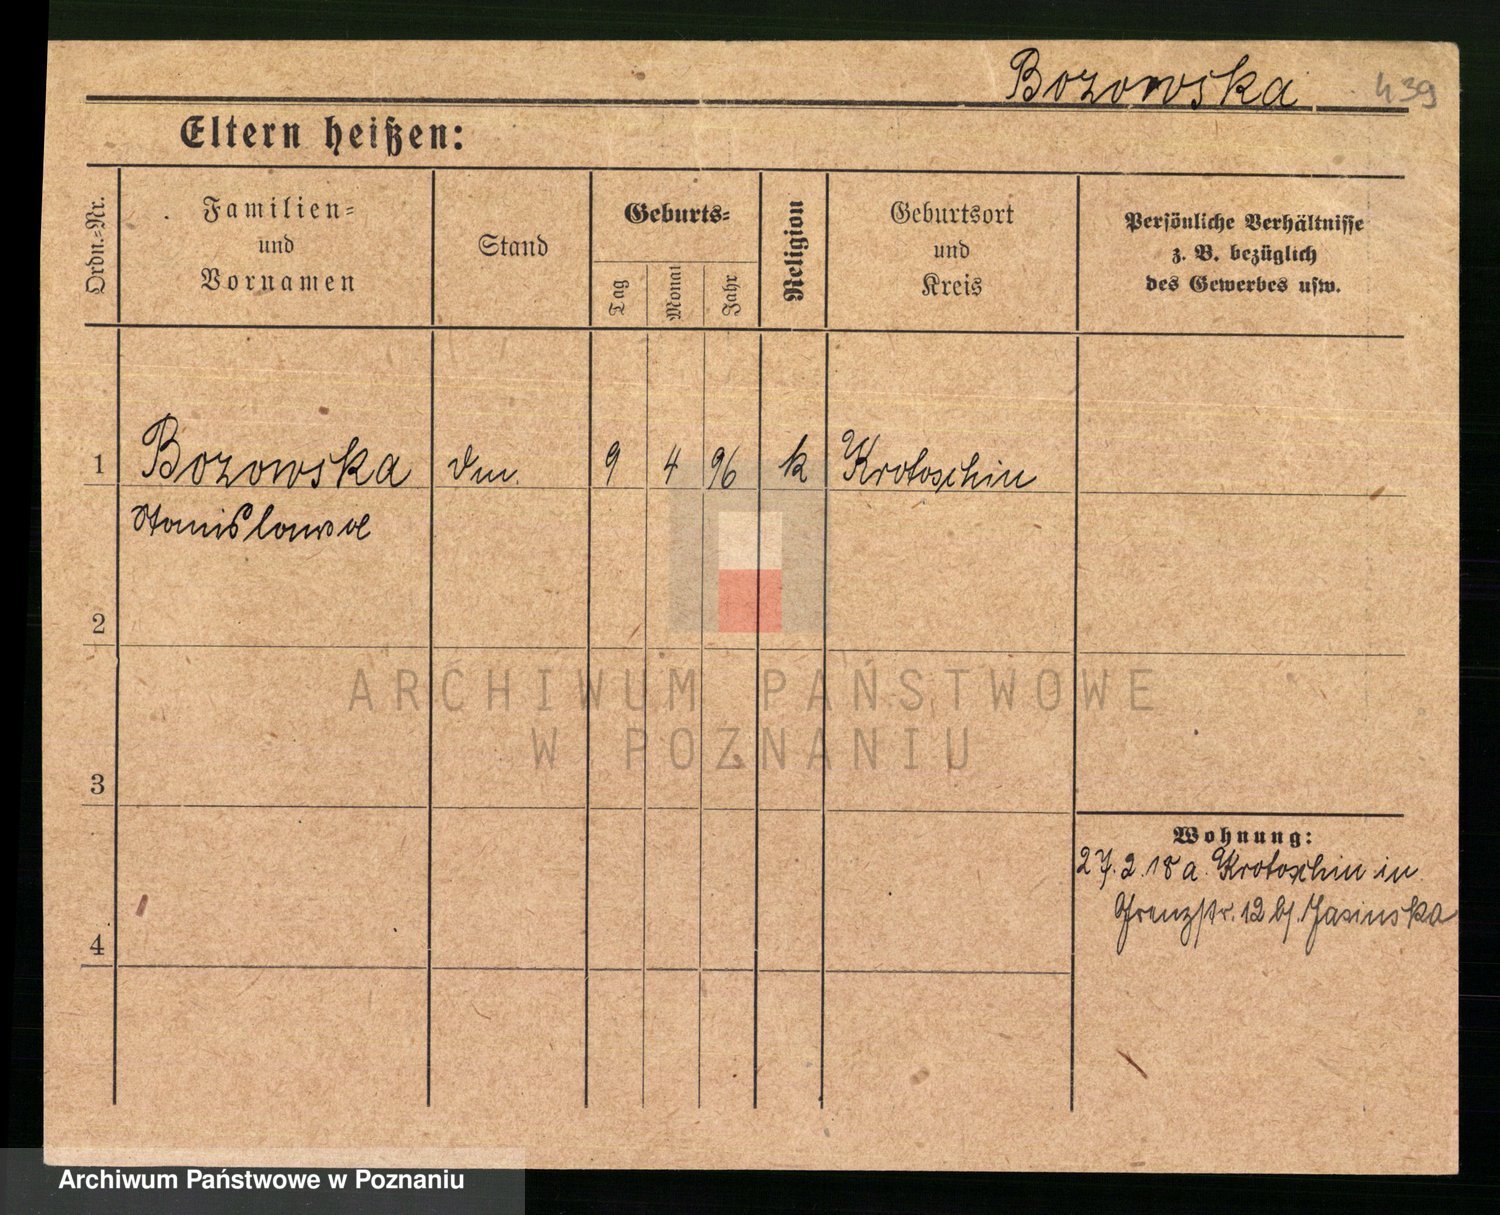 Bozowska
439
Eltern heißen:
Ordn.-Nr.
Familien-
und
Vornamen
Stand
Geburts-
Tag
Monat
Jahr
Religion
Geburtsort
und
Kreis
Persönliche Verhältnisse
z. B. bezüglich
des Gewerbes usw.
1 Bozowska 9 4 96 k Krotoschin
Stanislawa
2
ARCHIWUM PAŃSTWOWE
W POZNANIU
3
Wohnung:
27.2.18 a. Krotoschin in
Grenzstr. 12 b/. Jasinska
4
Archiwum Państwowe w Poznaniu